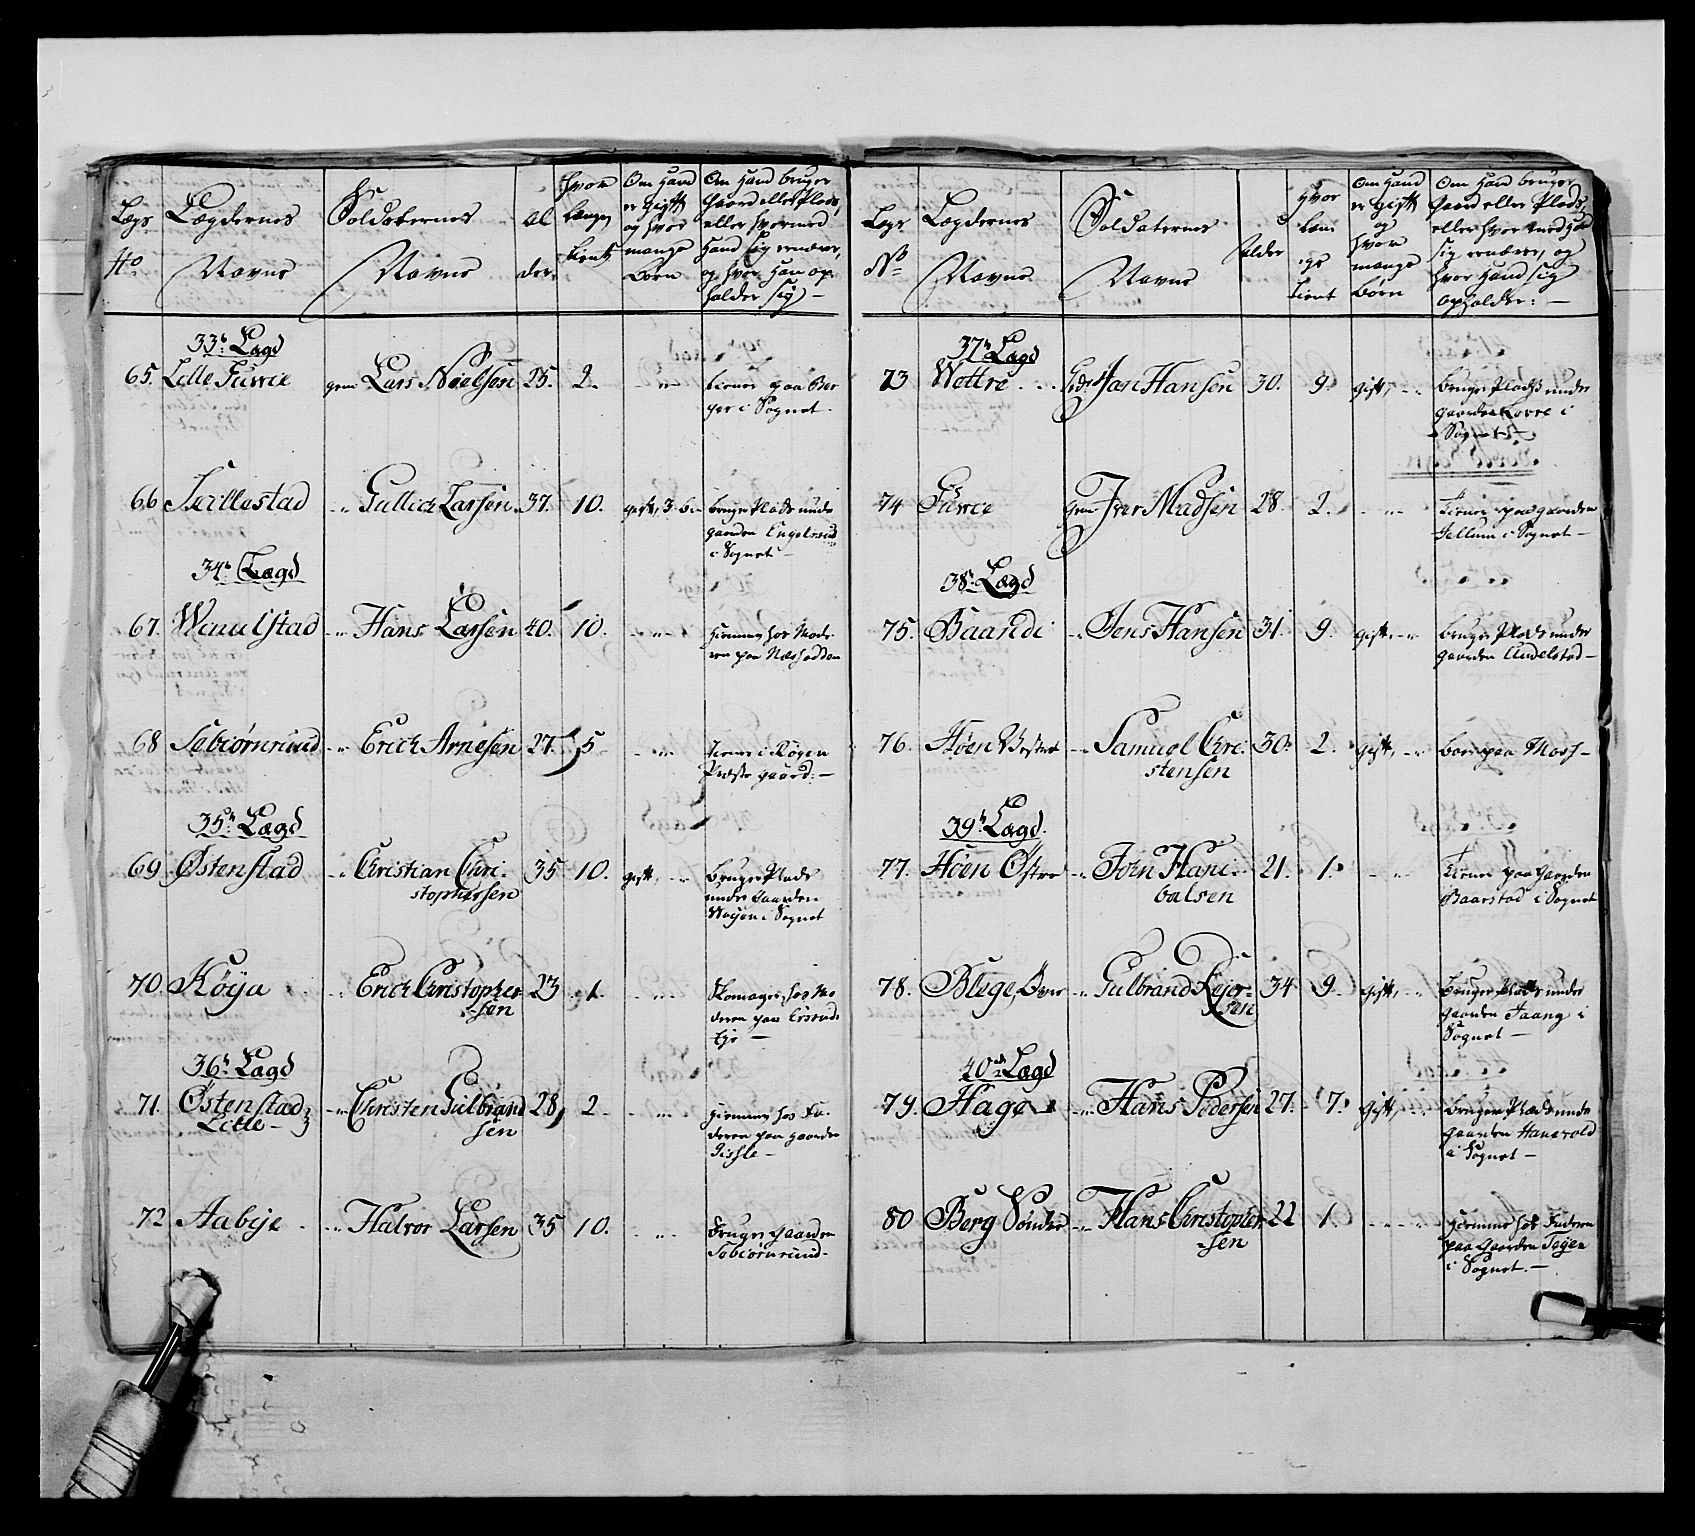 Legs No
Lægdernes Navne
Soldaternes Navne
Alder
Hvor længe tient
Om Hand er gift og hvor mange Børn
Om Hand bruger Gaard eller Plads, eller hvormed Hand sig ernærer, og hvor Han opholder sig —
33te Lægd
65. Lille
gem Lars Nielsen 25. 2. - " -
tiener paa Ber
ger i Sognet.
66
" Gullich Larsen 37. 10. gift, 3 b.
bruger Plads unde
gaarden Engelsrud
i Sognet —
34te Lægd
67.
" Hans Larsen 40. 10. " "
hiemme hos Mode
ren paa Næsodden
68
" Erich Arnesen 27. 5 - " "
tiener i Røgen
Præste gaard. —
35te Lægd
69 Østenstad
" Christian Chri-
stophersen
35 10. gift, "
bruger Plads
under Gaarden
Wøyen i Sognet
70. Køya
" Erich Christopher
-sen
23 1. " "
Skomager, hos Mo
deren paa
Eje —
36te Lægd
71. Østenstad
Litle —
" Christen Gulbrand
sen
28, 2 - " "
hiemme hos Fa
deren paa gaarden
Gisle —
72 Aabye
" Halvor Larsen 35 10. - " "
bruger gaarden
Sebiørnrud —
Legs No
Lægdernes Navne
Soldaternes Navne
Alder
Hvor længe tient
Om Hand er gift og hvor mange Børn
Om Hand bruger Gaard eller Plads, eller hvor med Hand sig ernærer, og hvor Hand sig opholder: —
37te Lægd
73 Wettre
Jan Hansen 30. 9. gift, - "
bruger Plads under
gaarden i
Sognet —
74
gem Iver Madsen 28. 2. - " "
tiener paa gaarden
Jellum i Sognet —
38te Lægd
75. Baandi
" Jens Hansen 31. 9. gift, "
bruger Plads under
gaarden Andelstad —
76. Høen Vestre
" Samuel Chri
stensen
30. 2. gift, - "
boer paa Moss —
39te Lægd.
77. Høen Østre
" Jørn Hani-
balsen
21. 1. - " "
tiener paa Gaarden
Baarstad i Sognet
78. Blege, Øvre
" Gulbrand Rejer-
sen
34 9. gift, - "
bruger Plads under
gaarden Jaang i
Sognet —
40de Lægd
79. Hage
" Hans Pedersen 27. 7. gift, "
bruger Plads unde
gaarden Hanevold
i Sognet —
80 Berg Søndre
" Hans Christopher
-sen
22 1. - " "
hiemme hos Faderen
paa gaarden Tøgen
i Sognet. —